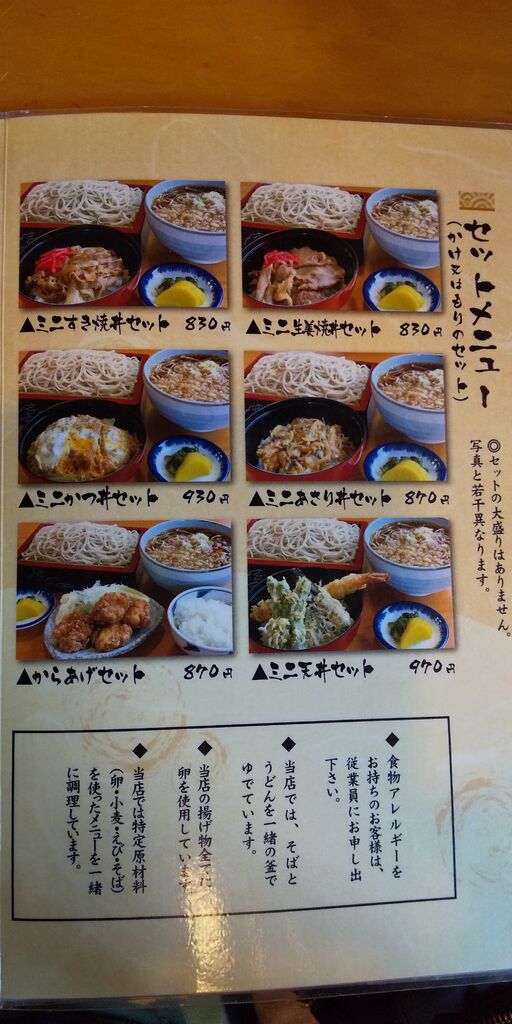 セットメニュー
(かけ又はもりのセット)
◎セットの大盛りはありません。
写真と若干異なります。
▲ミニ生姜焼丼セット 830円
▲ミニすき焼丼セット 830円
▲ミニあさり丼セット 870円
▲ミニかつ丼セット 930円
▲ミニ天丼セット 970円
▲からあげセット 870円
◆食物アレルギーを
お持ちのお客様は、
従業員にお申し出
下さい。
◆当店では、そばと
うどんを一緒の釜で
ゆでています。
◆当店の揚げ物全てに
卵を使用しています
◆当店では特定原材料
(卵・小麦・えび・そば)
を使ったメニューを一緒
に調理しています。